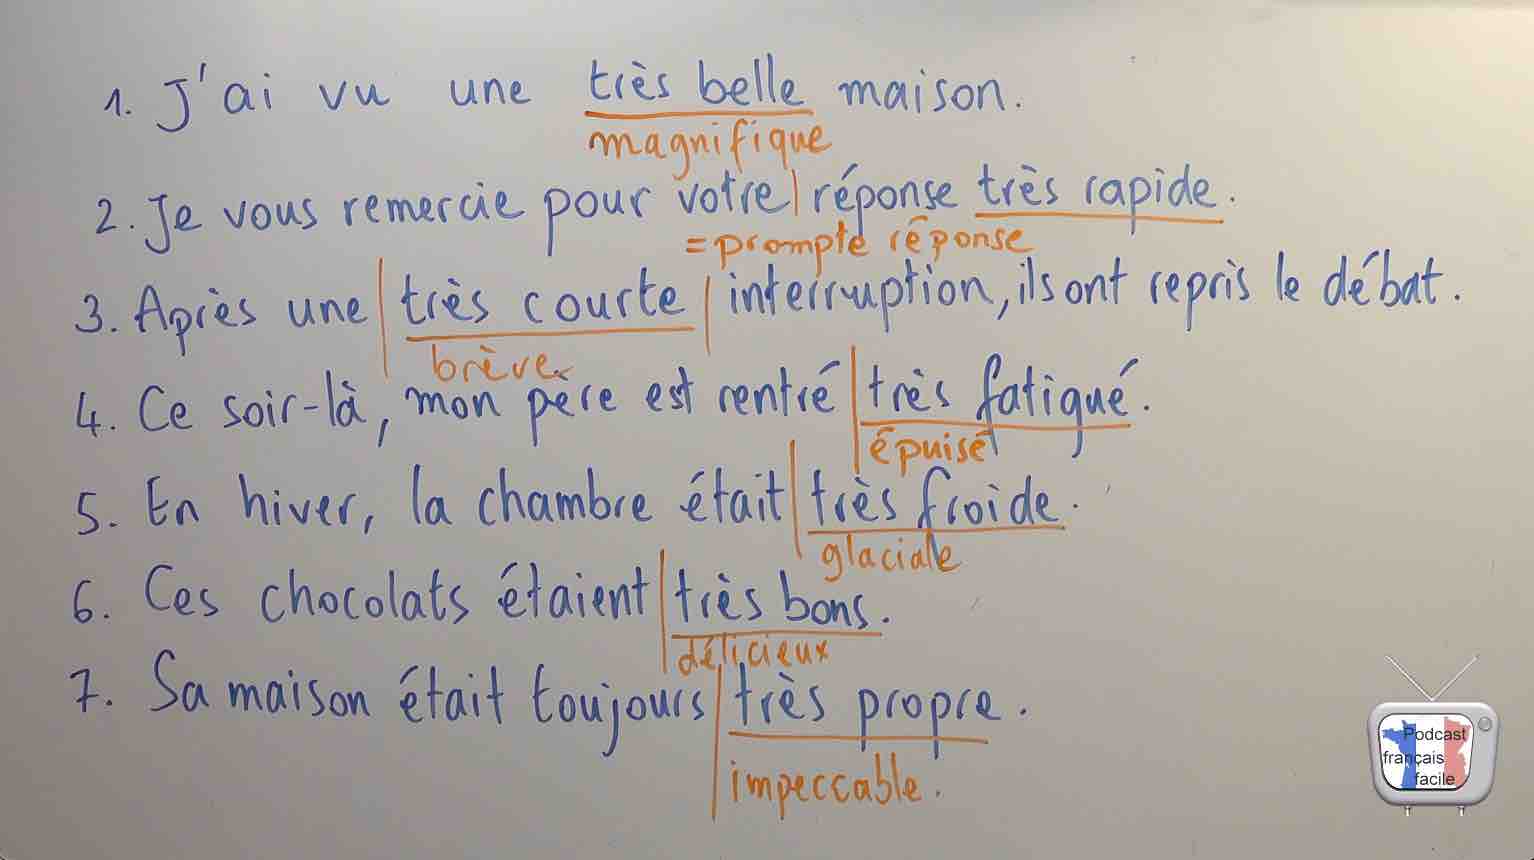 1. J'ai vu une très belle maison.
magnifique
2. Je vous remercie pour votre réponse très rapide.
= prompte réponse
3. Après une très courte interruption, ils ont repris le débat.
brève
4. Ce soir-là, mon père est rentré très fatigué.
épuisé
5. En hiver, la chambre était très froide.
glaciale
6. Ces chocolats étaient très bons.
délicieux
7. Sa maison était toujours très propre.
impeccable.
Podcast
français
facile